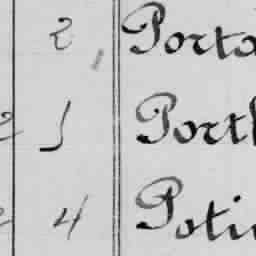 2 Porto
2 1 Porth
2 4 Potin